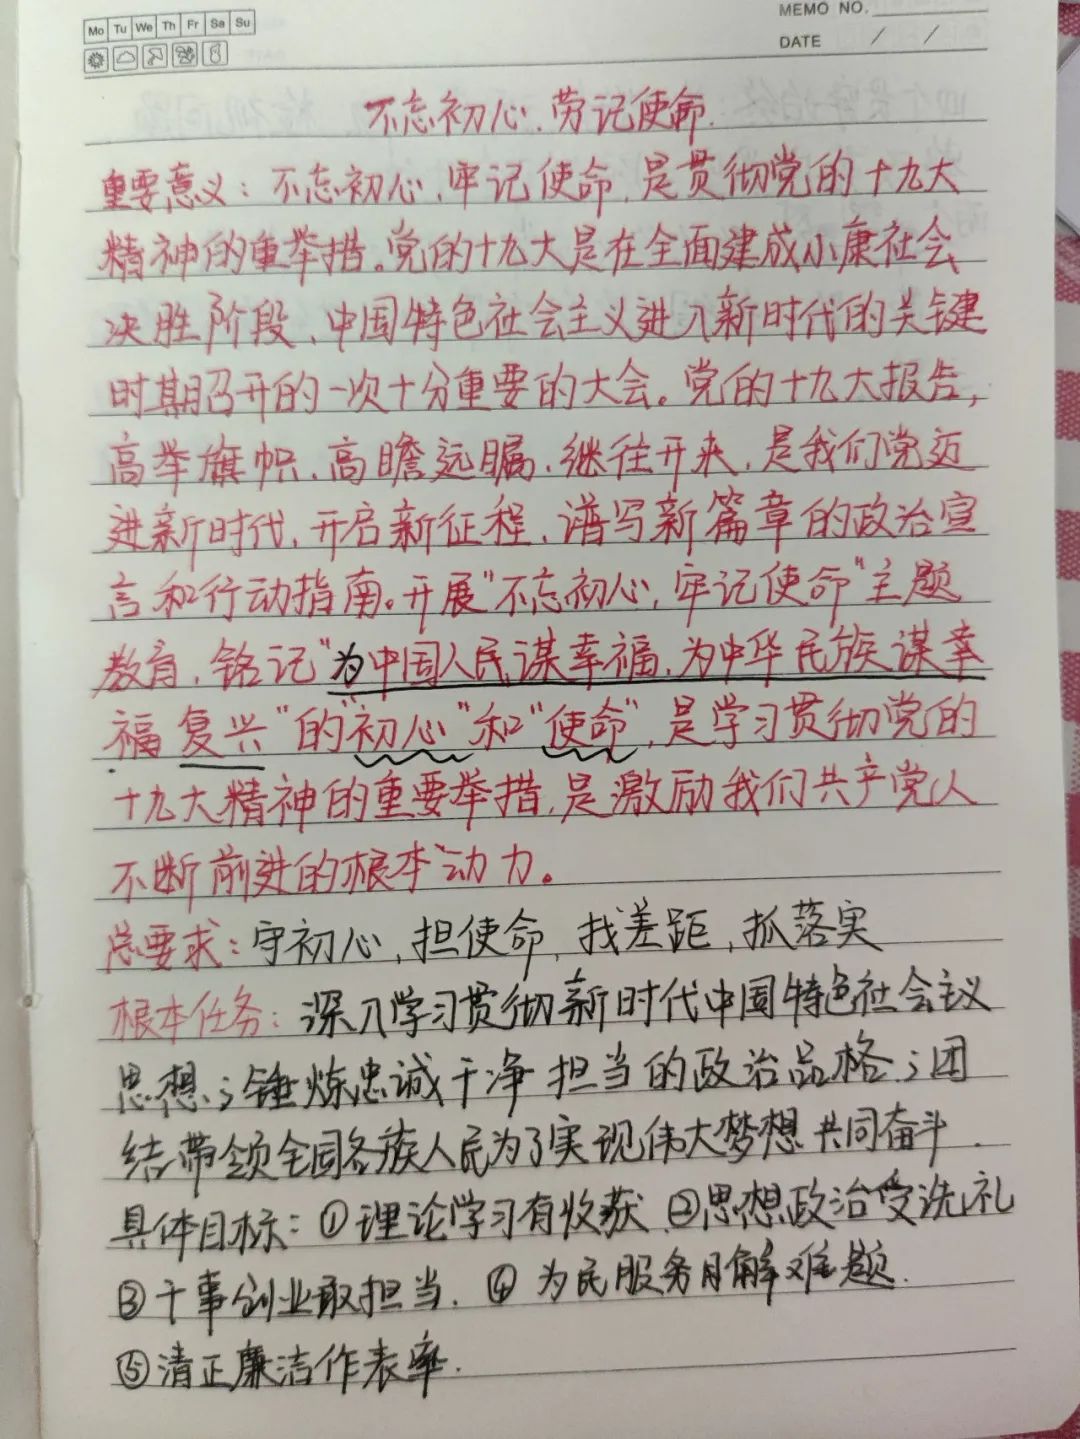 MEMO NO.
Mo Tu We Th Fr Sa Su
DATE / /
不忘初心、劳记使命.
重要意义：不忘初心,牢记使命,是贯彻党的十九大
精神的重举措。党的十九大是在全面建成小康社会
决胜阶段、中国特色社会主义进入新时代的关键
时期召开的一次十分重要的大会。党的十九大报告,
高举旗帜、高瞻远瞩、继往开来,是我们党迈
进新时代,开启新征程、谱写新篇章的政治宣
言和行动指南。开展"不忘初心,牢记使命"主题
教育,铭记"为中国人民谋幸福,为中华民族谋幸
福复兴"的"初心"和"使命",是学习贯彻党的
十九大精神的重要举措,是激励我们共产党人
不断前进的根本动力。
总要求：守初心,担使命,找差距,抓落实
根本任务：深入学习贯彻新时代中国特色社会主议
思想；锤炼忠诚干净担当的政治品格；团
结带领全国各族人民为了实现伟大梦想共同奋斗.
具体目标：①理论学习有收获、②思想政治受洗礼
③干事创业敢担当. ④为民服务解难题.
⑤清正廉洁作表率.